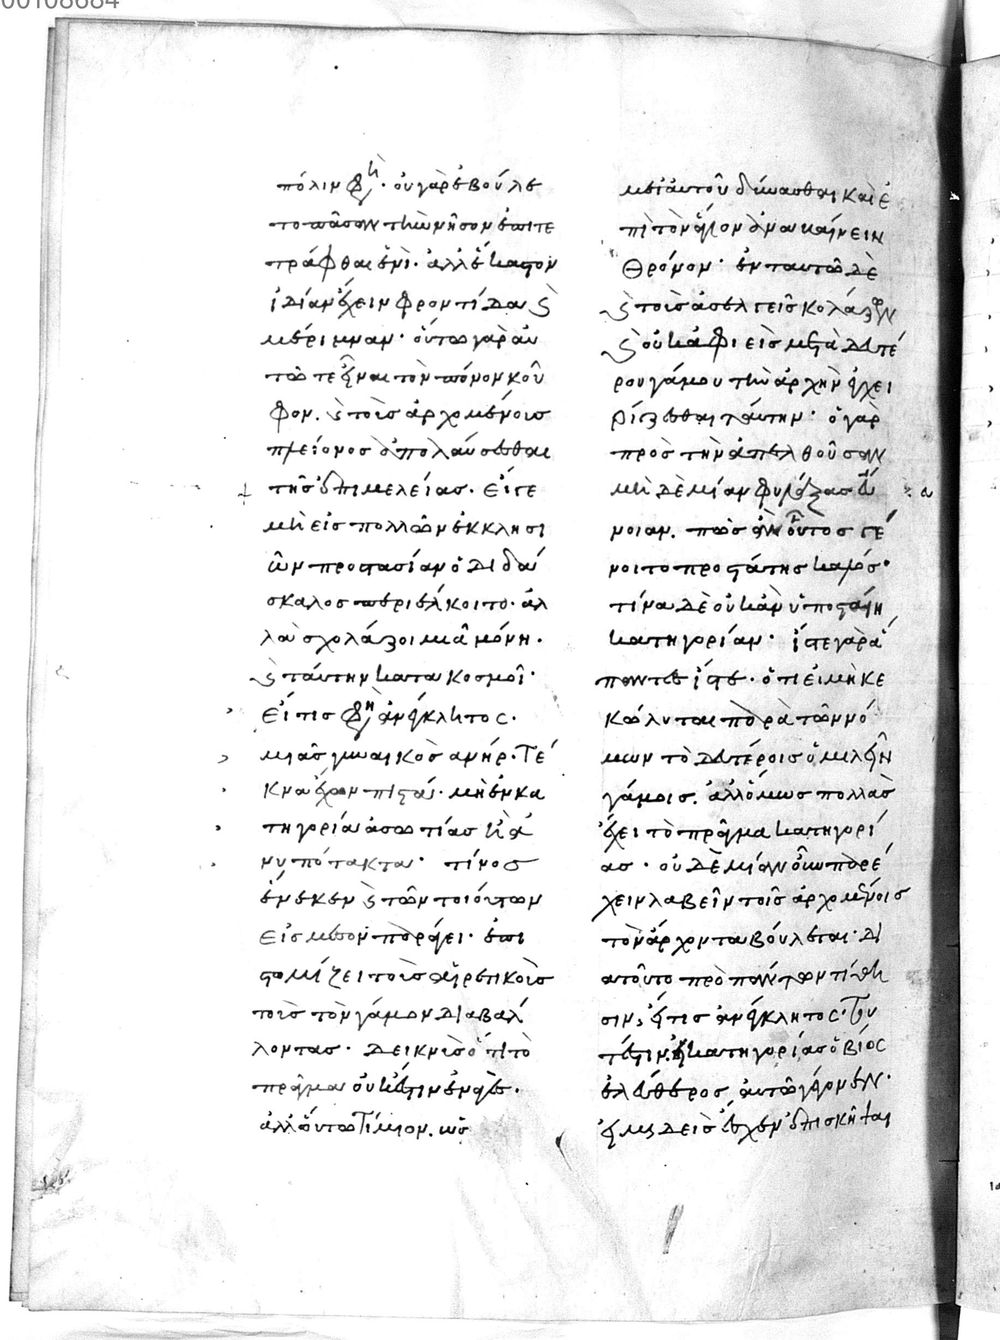 00108684
πόλιν φη. οὐ γὰρ ἐβούλε
το πᾶσαν τὴν νῆσον ἐπιτε
τράφθαι ἑνὶ. ἀλλ' ἕκαστον
ἰδίαν ἔχειν φροντίδα ϛ
μέριμναν. οὕτω γὰρ αὐ
τῶ τε εἶναι τὸν πόνον κοῦ
φον. ϛ τοὺς ἀρχομένους
πλείονος ἀπολαύσεσθαι
τῆς ἐπιμελείας. εἴ γε
μὴ εἰς πολλῶν ἐκκλησι
ῶν προστασίαν ὁ διδά
σκαλος περιέλκοιτο. ἀλ
λὰ σχολάζοι μιᾶ μόνη.
ϛ ταύτην κατακοσμοῖ.
εἴ τις φη ἀνέγκλητος.
μιᾶς γυναικὸς ἀνήρ. τέ
κνα ἔχων πιστά. μὴ ἐν κα
τηγορία ἀσωτίας ἢ ἀ
νυπότακτα. τίνος
ἕνεκεν ϛ τῶν τοιούτων
εἰς μέσον παράγει. ἐπι
στομίζει τοὺς αἱρετικοὺς
τοὺς τὸν γάμον διαβάλ
λοντας. δεικνὺς ὅτι τὸ
πρᾶγμα οὐκ ἔστιν ἐναγὲς.
ἀλλ' οὕτω τίμιον. ὡς
μετ' αὐτοῦ δύνασθαι καὶ ἐ
πὶ τὸν ἅγιον ἀναβαίνειν
θρόνον. ἐν ταυτῶ δὲ
ϛ τοὺς ἀσελγεῖς κολάζων
ϛ οὐκ ἀφιεὶς μετὰ δευτέ
ρου γάμου τὴν ἀρχὴν ἐγχει
ρίζεσθαι ταύτην. ὁ γὰρ
πρὸς τὴν ἀπελθοῦσαν
μὴ δεμίαν φυλάξας εὔ
νοιαν. πῶς ἂν οὗτος γέ
νοιτο προστάτης καλός.
τίνα δὲ οὐκ ἂν ὑποσταίη
κατηγορίαν. ἴστε γὰρ ἅ
παντες ἴστε. ὅτι εἰ μὴ κε
κώλυται παρὰ τῶν νό
μων τὸ δευτέροις ὁμιλεῖν
γάμοις. ἀλλ' ὅμως πολλὰς
ἔχει τὸ πρᾶγμα κατηγορί
ας. οὐδεμίαν οὖν παρέ
χειν λαβεῖν τοῖς ἀρχομένοις
τὸν ἄρχοντα βούλεται. δι
ατοῦτο πρὸ πάντων τίθη
σιν, εἴ τις ἀνέγκλητος. του
τέστιν εἰ κατηγορίας ὁ βίος
ἐλεύθερος αὐτῶ γέγονεν.
εἰ μηδεὶς ἔσχεν ἐπισκῆψαι